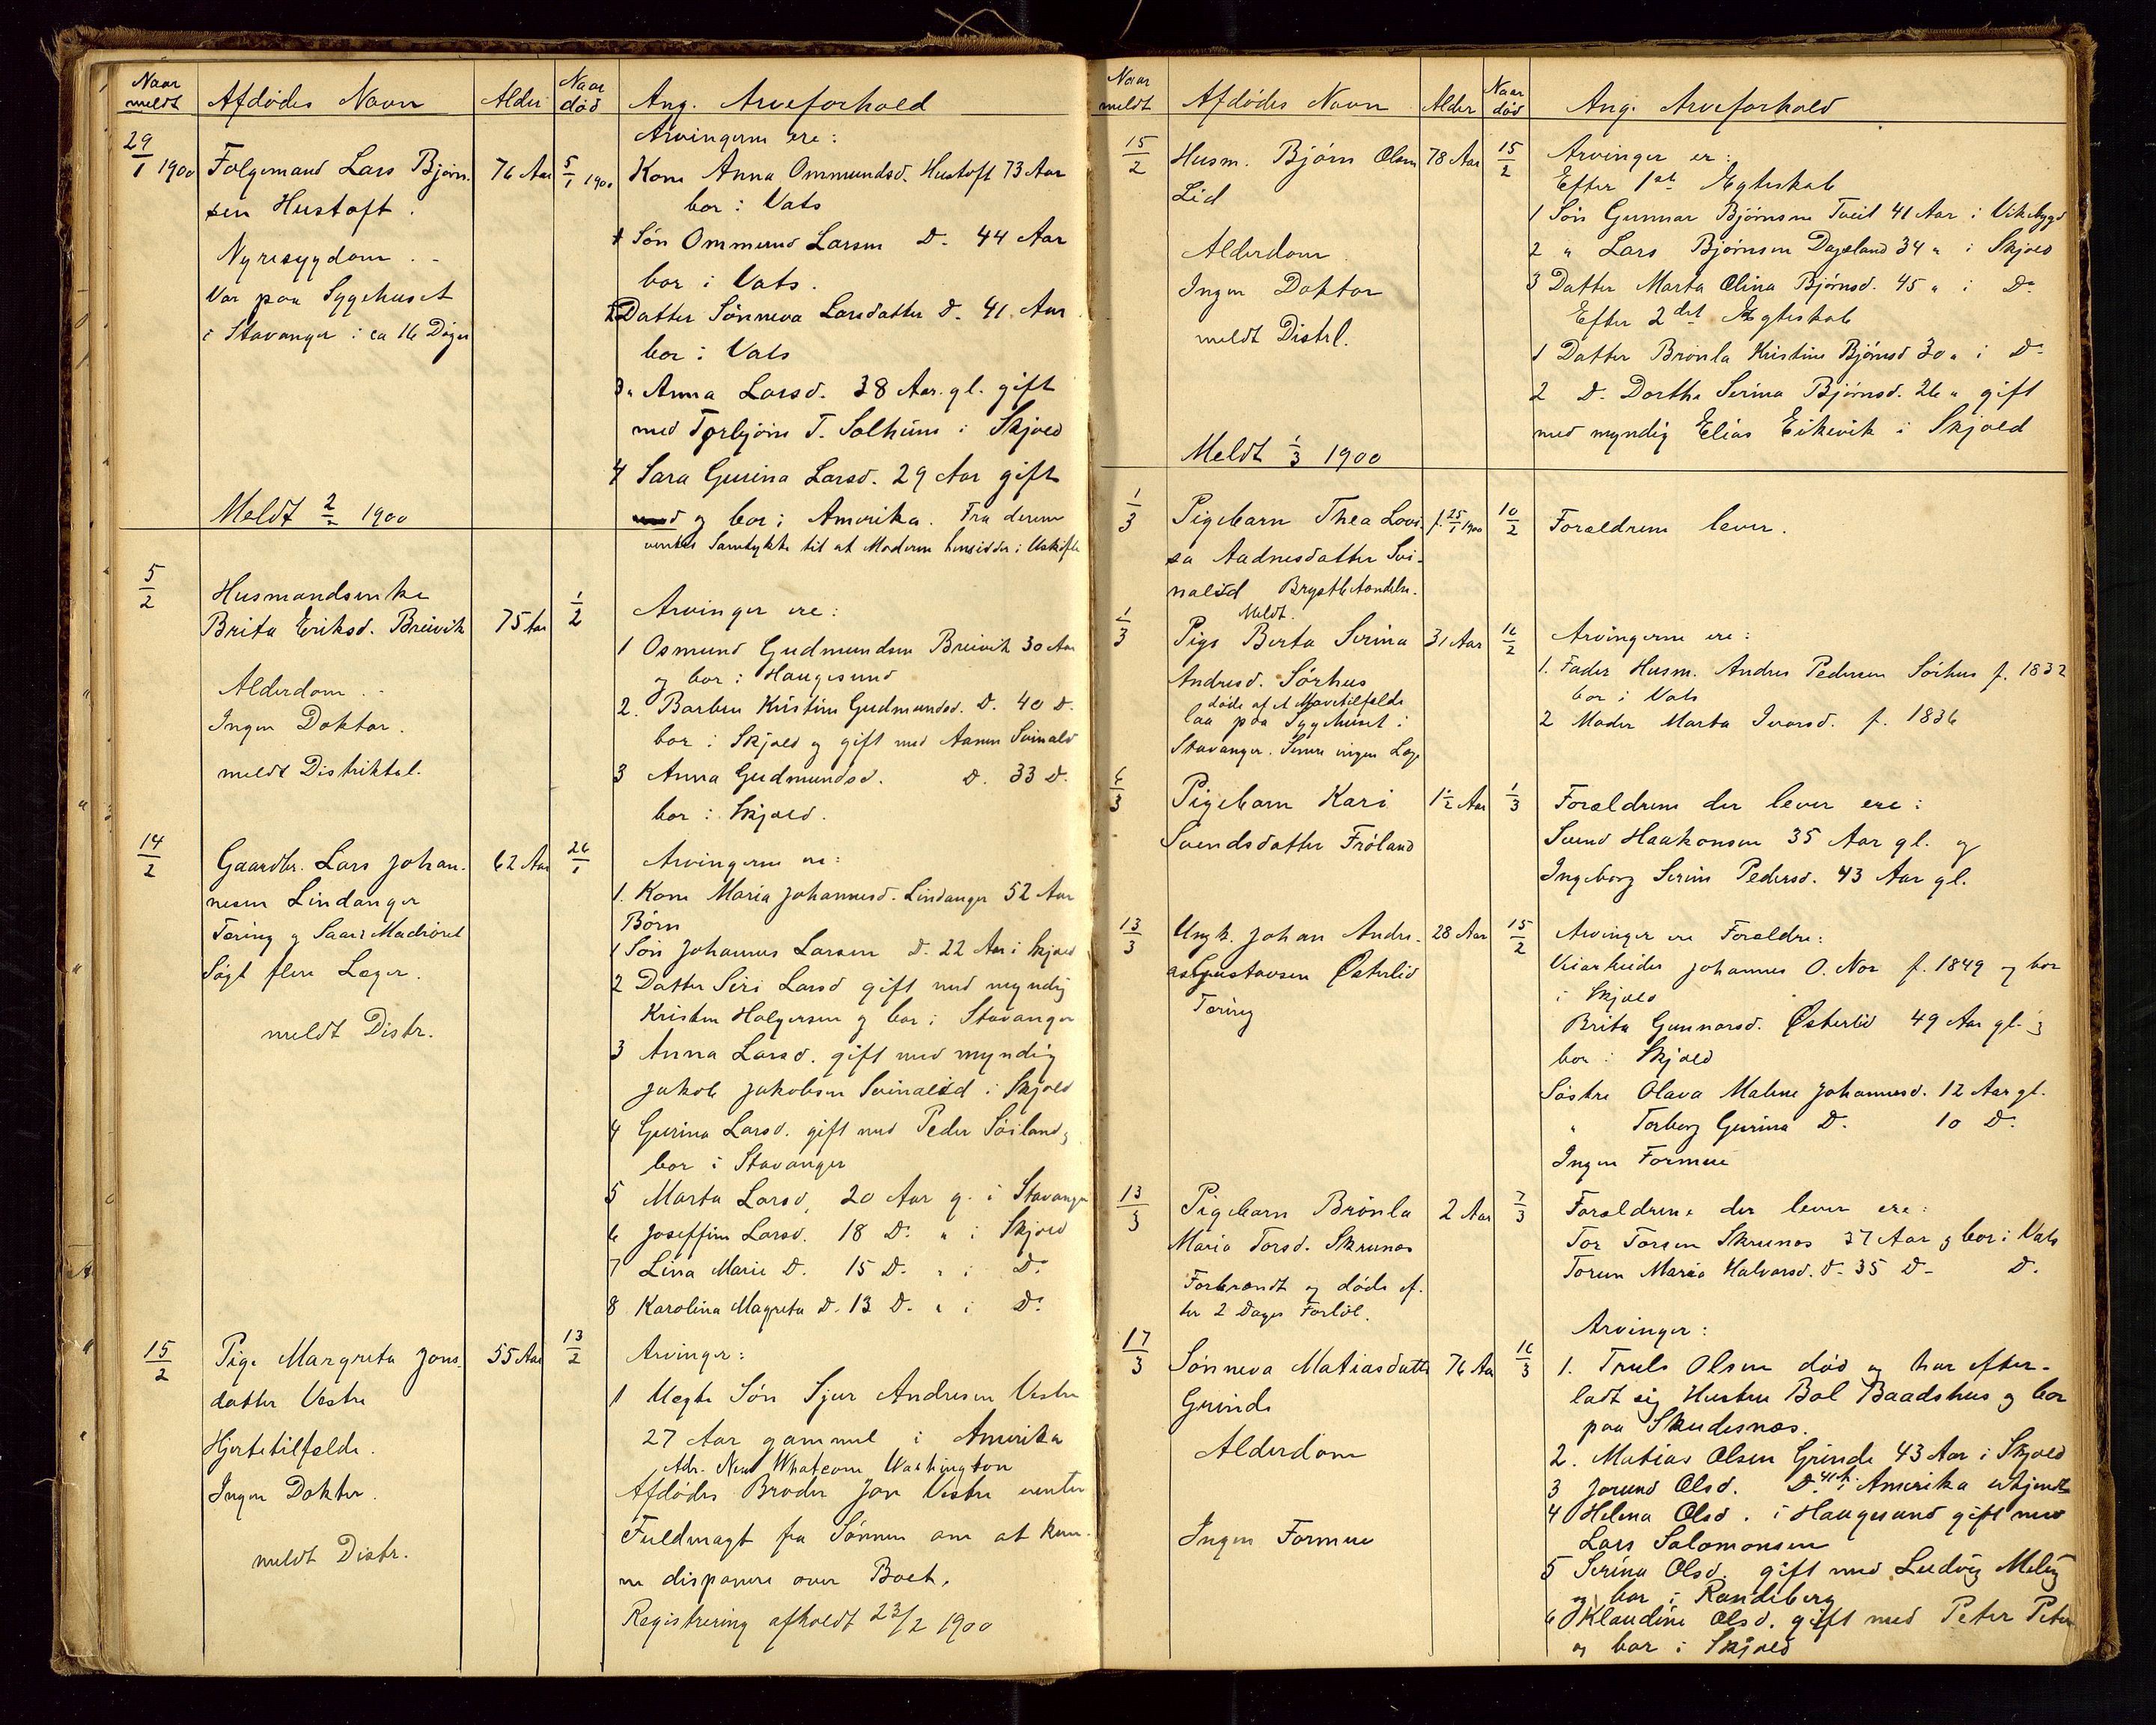 Naar meldt Afdödes Navn Alder Naar död Ang. Arveforhold
29/1 1900 Folgemand Lars Bjørn- 76 Aar 5/1 1900
sen Hustoft.
Nyresygdom.
Var paa Sygehuset
i Stavanger i ca 16 Döger
Meldt 2/2 1900
Arvingerne ere:
Kone Anna Ommundsd. Hustoft 73 Aar
bor i Vats
1 Sön Ommund Larsen D. 44 Aar
bor i Vats.
2 Datter Sönneva Larsdatter D. 41 Aar
bor i Vats
3 " Anna Larsd. 38 Aar. gl. gift
med Torbjörn T. Solheim i Skjold
4 Sara Gurina Larsd. 29 Aar gift
og bor i Amerika. Fra denne
ventes Samtykke til at Moderen hensidder i Uskifte
5/2 Husmandsenke
Brita Eriksd. Breivik 75 Aar 1/2
Alderdom.
Ingen Doktor.
meldt Distriktsl.
Arvinger ere:
1 Osmund Gudmundsen Breivik 30 Aar
og bor i Haugesund
2. Barbru Kristine Gudmundsd. D. 40 D.
bor i Skjold og gift med Aamun Svinali
3 Anna Gudmundsd. D. 33 D.
bor i Skjold.
14/2 Gaardbr. Lars Johan- 62 Aar 26/1
nesen Lindanger
Tæring og Saar i Madröret
Sögt flere Læger.
meldt Distr.
Arvingerne ere:
1. Kone Maria Johannesd. Lindanger 52 Aar
Börn
1 Sön Johannes Larsen D. 22 Aar i Skjold
2 Datter Siri Larsd gift med myndig
Kristen Holgersen og bor i Stavanger
3 Anna Larsd. gift med myndig
Jakob Jakobsen Svinalid i Skjold
4 Gurina Larsd. gift med Peder Söiland og
bor i Stavanger
5 Marta Larsd, 20 Aar g. i Stavanger
6 Joseffine Larsd. 18 D. " i Skjold
7 Lina Marie D. 15 D. " i D.
8 Karolina Magreta D. 13 D. " i D.
15/2 Pige Margreta Jons- 55 Aar 13/2
datter Vestre
Hjertetilfælde.
Ingen Doktor.
meldt Distr.
Arvinger:
1 Uegte Sön Sjur Andresen Vestre
27 Aar gammel i Amerika
Adr. New Whatcom Washington
Afdödes Broder Jon Vestre venter
Fuldmagt fra Sönnen om at kun-
ne disponere over Boet.
Registrering afholdt 23/2 1900
Naar meldt Afdödes Navn Alder Naar död Ang. Arveforhold
15/2 Husm. Björn Olsen 78 Aar 15/2
Lid
Alderdom.
Ingen Doktor
meldt Distrl.
Meldt 1/3 1900
Arvinger er:
Efter 1st Ægteskab
1 Sön Gunnar Björnsen Tveit 41 Aar i Vikebygd
2 " Lars Björnsen Dagsland 34 " i Skjold
3 Datter Marta Olina Björnsd. 45 " i D.
Efter 2det Ægteskab
1 Datter Brönla Kristine Björnsd 30 " i D.
2 D. Dorthe Serina Björnsd. 26 " gift
med myndig Elias Eikevik i Skjold
1/3 Pigebarn Thea Lovi- f. 25/1 1900 10/2 Forældrene lever.
sa Aadnesdatter Svi-
nalid Brystbetændelse.
Meldt.
1/3 Pige Berta Serina 31 Aar 16/2
Andresd. Sörhus
döde af et Mavetilfælde
laa paa Sygehuset i
Stavanger. Senere ingen Læge
Arvingerne ere:
1. Fader Husm. Andres Pedersen Sörhus f. 1832
bor i Vats
2 Moder Marta Ivarsd. f. 1836
6/3 Pigebarn Kari 1 1/2 Aar 1/3
Svendsdatter Fröland
Forældrene der lever ere:
Svend Haakonsen 35 Aar gl. og
Ingeborg Serine Pedersd. 43 Aar gl.
13/3 Ungk. Johan Andre- 28 Aar 15/2
as Gustavsen Österlid
Tæring
Arvinger ere Forældre:
Veiarbeider Johannes O. Nor f. 1849 og bor
i Skjold
Brita Gunnarsd. Österlid 49 Aar gl. og
bor i Skjold
Söstre Olava Malene Johannesd. 12 Aar gl.
" Torborg Gurina D. 10 D.
Ingen Formue
13/3 Pigebarn Brönla 2 Aar 7/3
Maria Torsd. Skrunes
Forbrændt og döde ef-
ter 2 Dages Forlöb.
Forældrene der lever ere:
Tor Torsen Skrunes 37 Aar og bor i Vats
Torun Maria Halvorsd. D. 35 D. D.
17/3 Sönneva Matiasdatter 76 Aar 16/3
Grinde
Alderdom
Ingen Formue
Arvinger:
1. Truls Olsen död og har efter-
ladt sig Hustru Bol Baadshus og bor
paa Skudesnæs.
2. Matias Olsen Grinde 43 Aar i Skjold
3 Jorund Olsd. D. 41 A. i Amerika ubjendt
4 Helena Olsd. i Haugesund gift med
Lars Salomonsen
5 Serina Olsd. gift med Ludvig Meling
og bor i Randeberg
6 Klaudine Olsd. gift med Peter Peter
og bor i Skjold